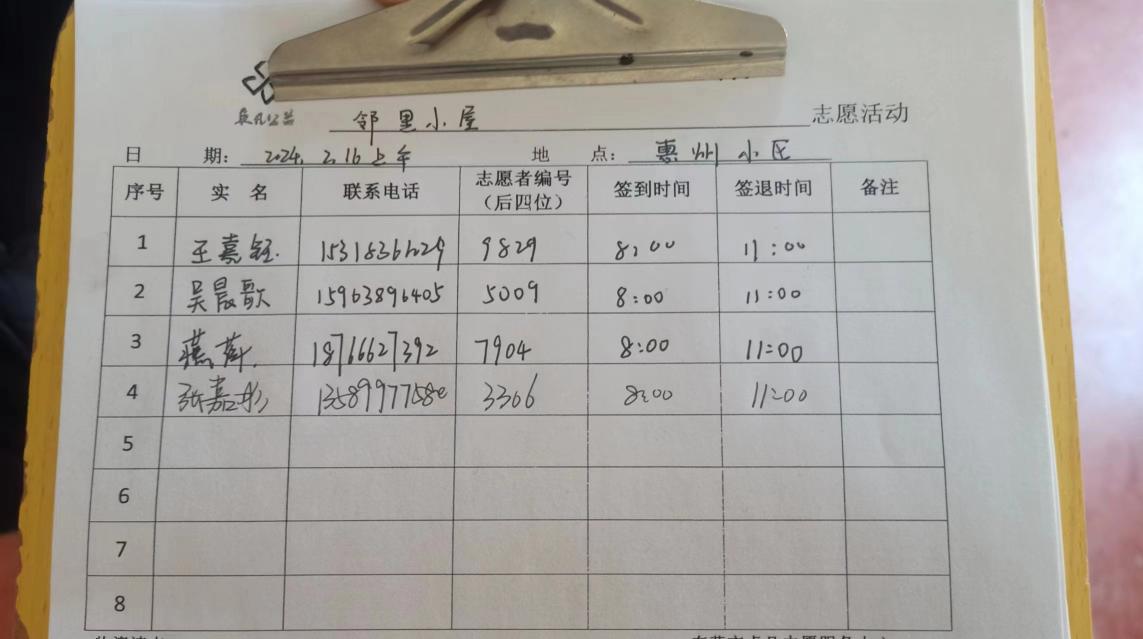 邻里小屋 志愿活动
日 期: 2024. 2.16上午 地 点: 惠州小区
序号 实 名 联系电话 志愿者编号（后四位） 签到时间 签退时间 备注
1 王嘉钰 9829 8:00 11:00
2 吴晨歌 15963896405 5009 8:00 11:00
3 18766627392 7904 8:00 11:00
4 张嘉彤 3366 8:00 11:00
5
6
7
8